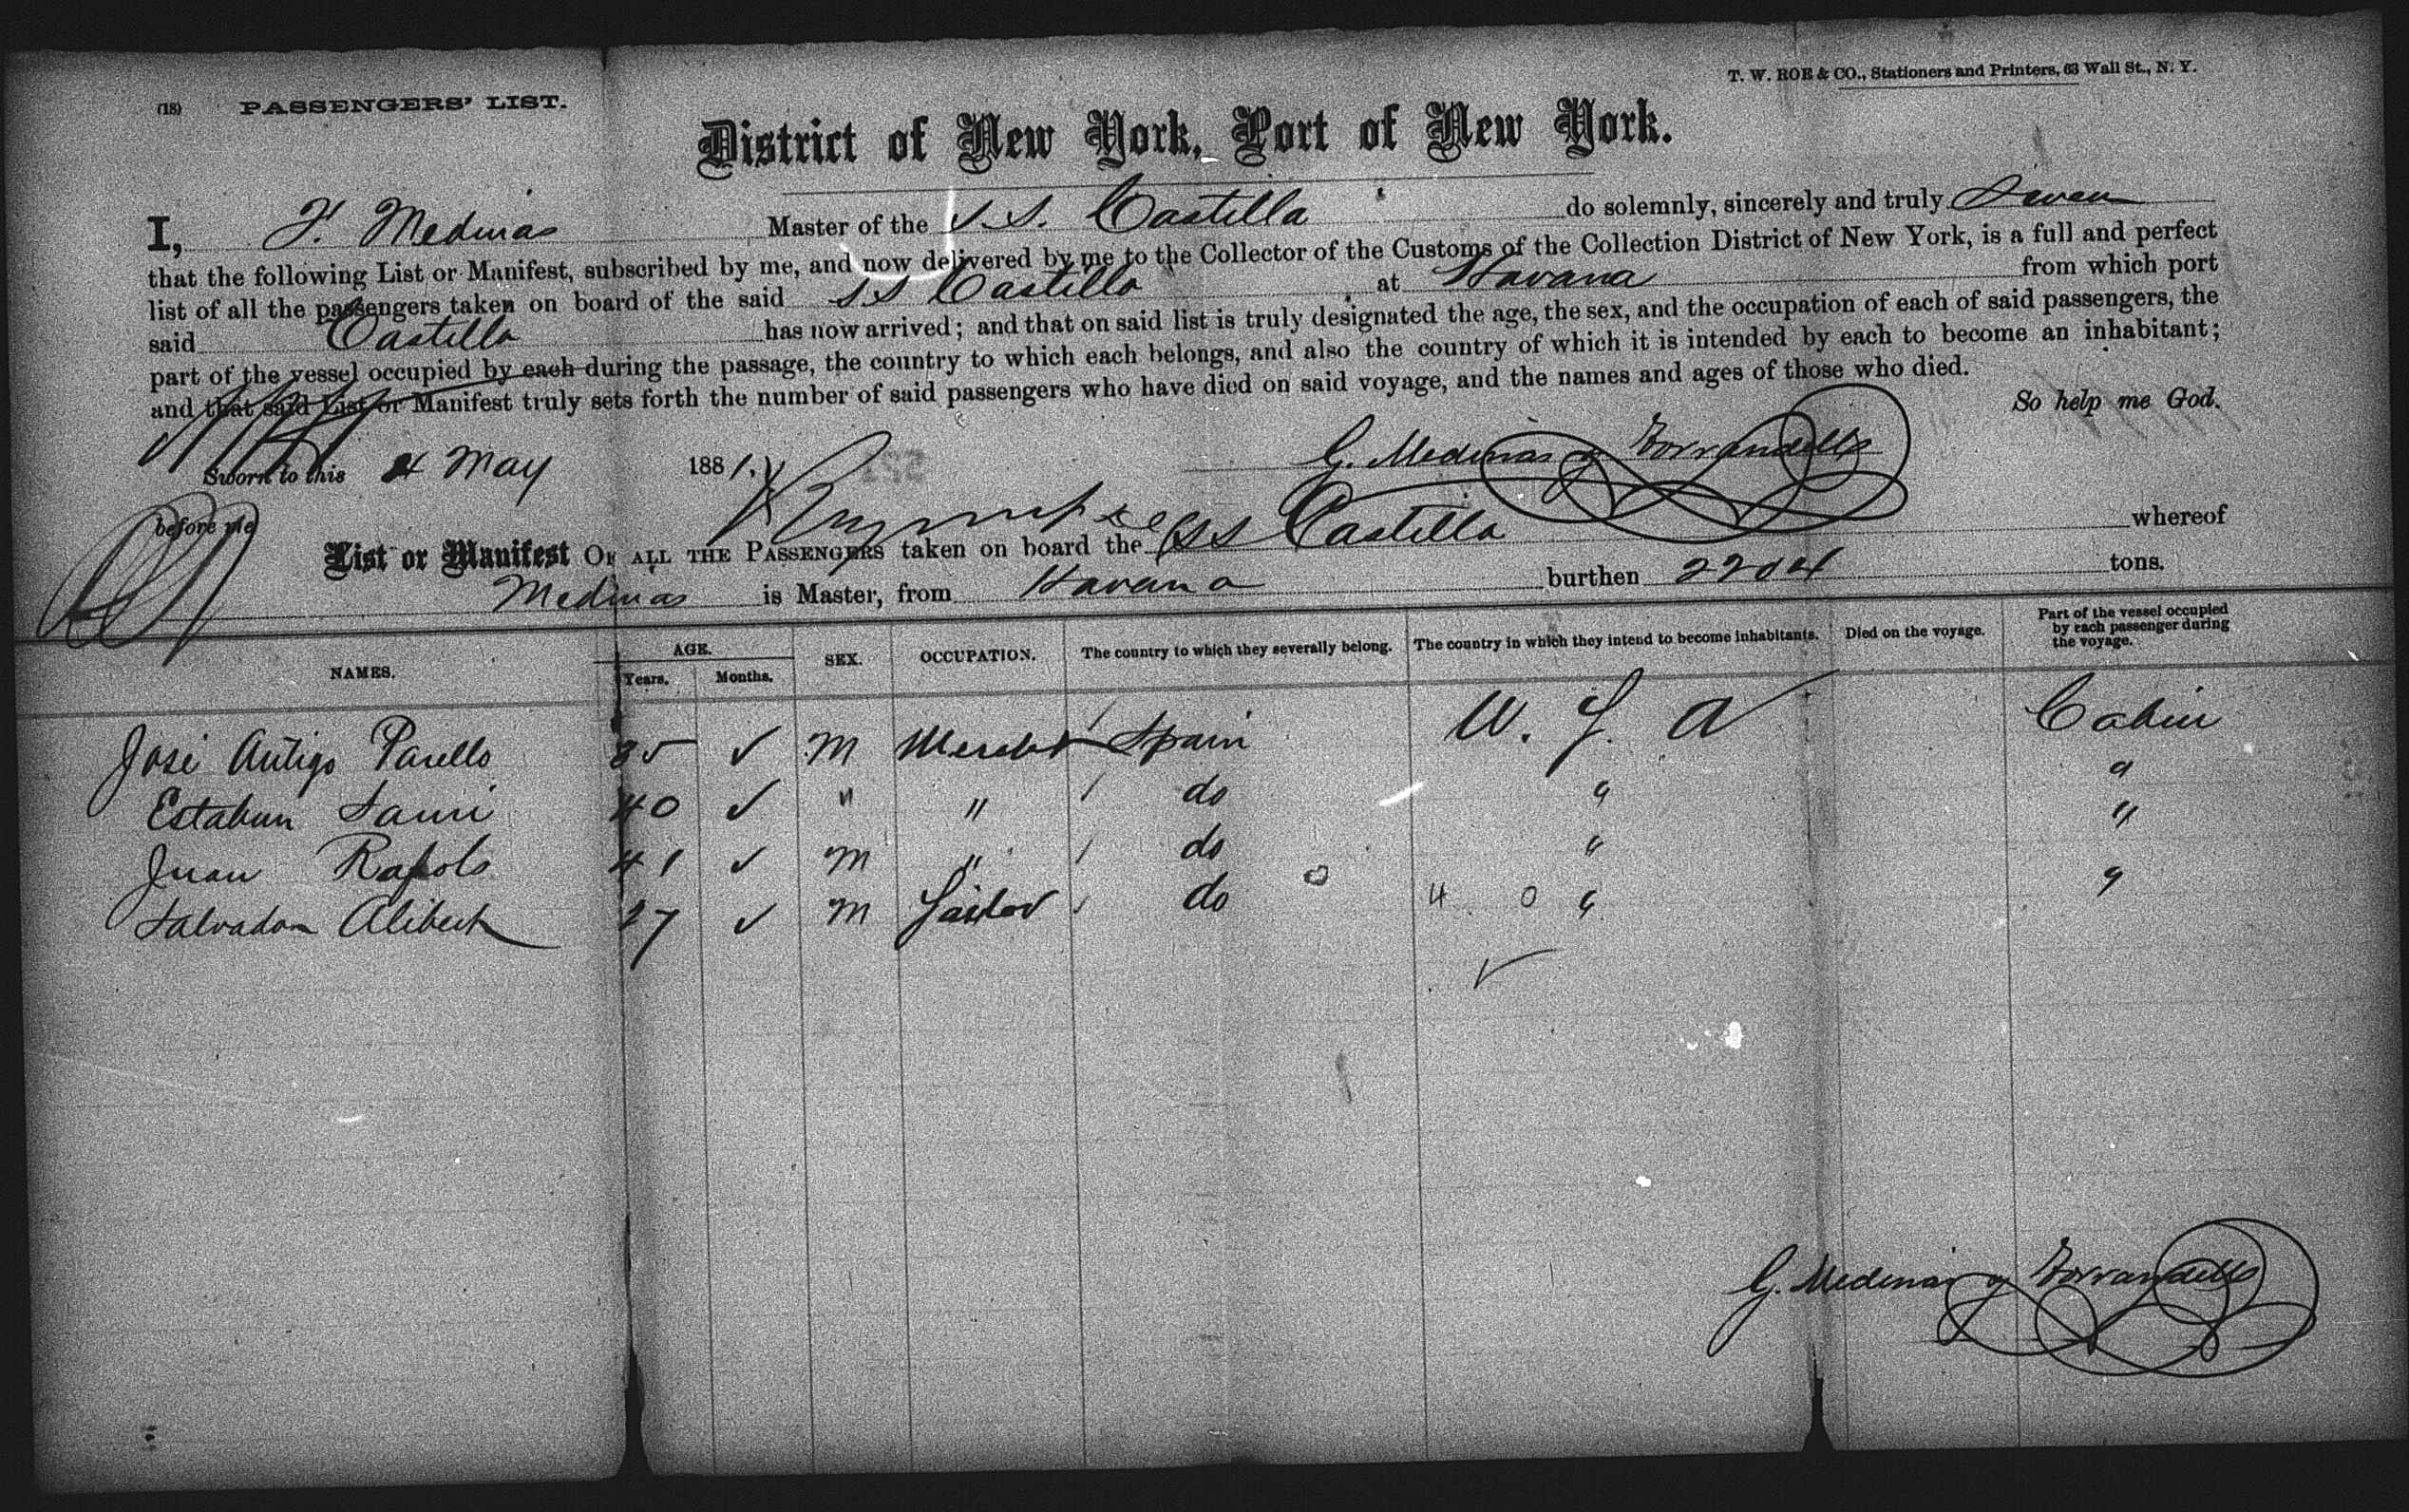 (18) PASSENGERS' LIST.
T. W. ROE & CO., Stationers and Printers, 63 Wall St., N. Y.
District of New York, Port of New York.
I, Medinas Master of the S.S. Castilla do solemnly, sincerely and truly Swear
that the following List or Manifest, subscribed by me, and now delivered by me to the Collector of the Customs of the Collection District of New York, is a full and perfect
list of all the passengers taken on board of the said SS Castilla at Havana from which port
said Castilla has now arrived; and that on said list is truly designated the age, the sex, and the occupation of each of said passengers, the
part of the vessel occupied by each during the passage, the country to which each belongs, and also the country of which it is intended by each to become an inhabitant;
and that said List or Manifest truly sets forth the number of said passengers who have died on said voyage, and the names and ages of those who died.
So help me God.
Sworn to this 4 May 1881. G. Medinas y
before me
List or Manifest OF ALL THE PASSENGERS taken on board the SS Castilla whereof
Medinas is Master, from Havana burthen 2204 tons.
NAMES. AGE. Years. Months. SEX. OCCUPATION. The country to which they severally belong. The country in which they intend to become inhabitants. Died on the voyage. Part of the vessel occupied by each passenger during the voyage.
José Antigo 35 ✓ M Spain U. S. A Cabin
40 ✓ " " / do " "
Juan Rafols 41 ✓ M " / do " "
Salvador Alibert 27 ✓ M Sailor / do 0 4 0 " "
✓
G. Medinas y